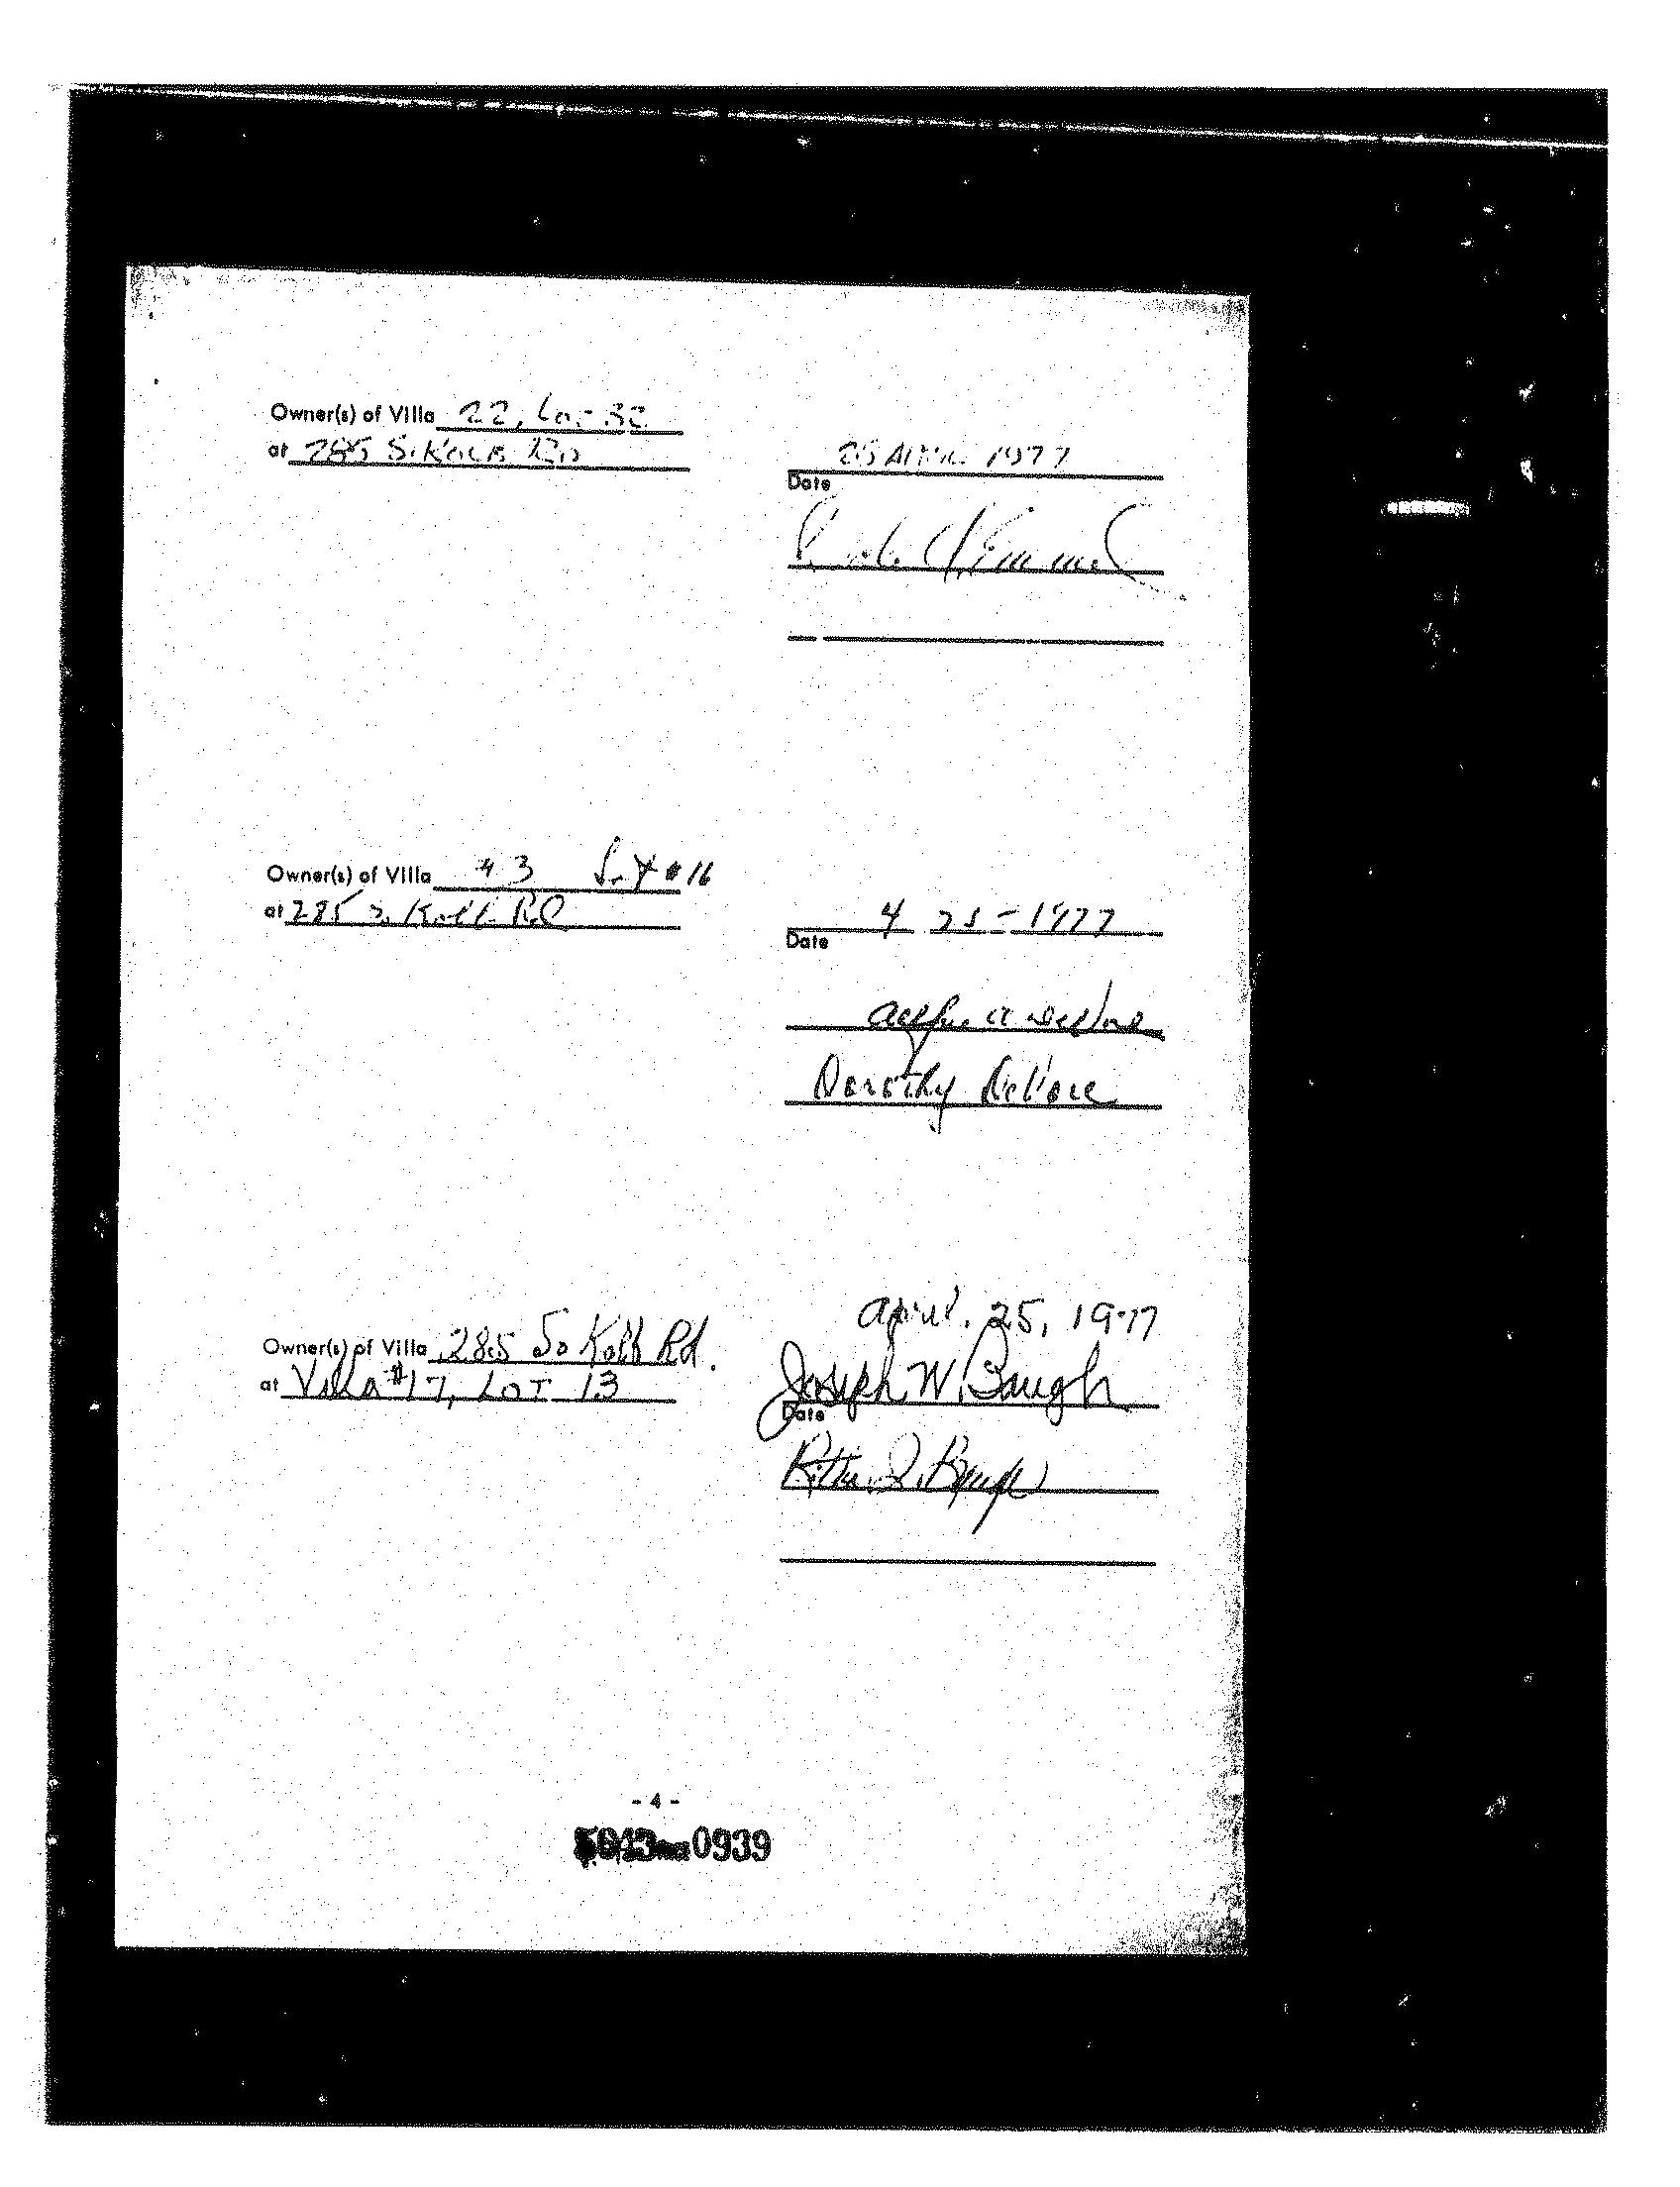 Owner(s) of Villa 22, Lot 32
at 285 S. Kolb Rd
25 April 1977
Date
Owner(s) of Villa #3 Lot #16
at 285 S. Kolb Rd
4 25-1977
Date
Dorothy
April. 25, 1977
Owner(s) of Villa 285 So Kolb Rd.
at Villa #17, LOT 13
Joseph W. Baugh
Date
Baugh
- 4 -
0939